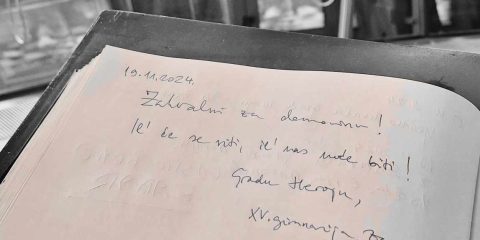 19.11.2024.
Zahvalni za domovinu!
Il' će se viti, il' nas neće biti!
Gradu Heroju,
XV. gimnazija